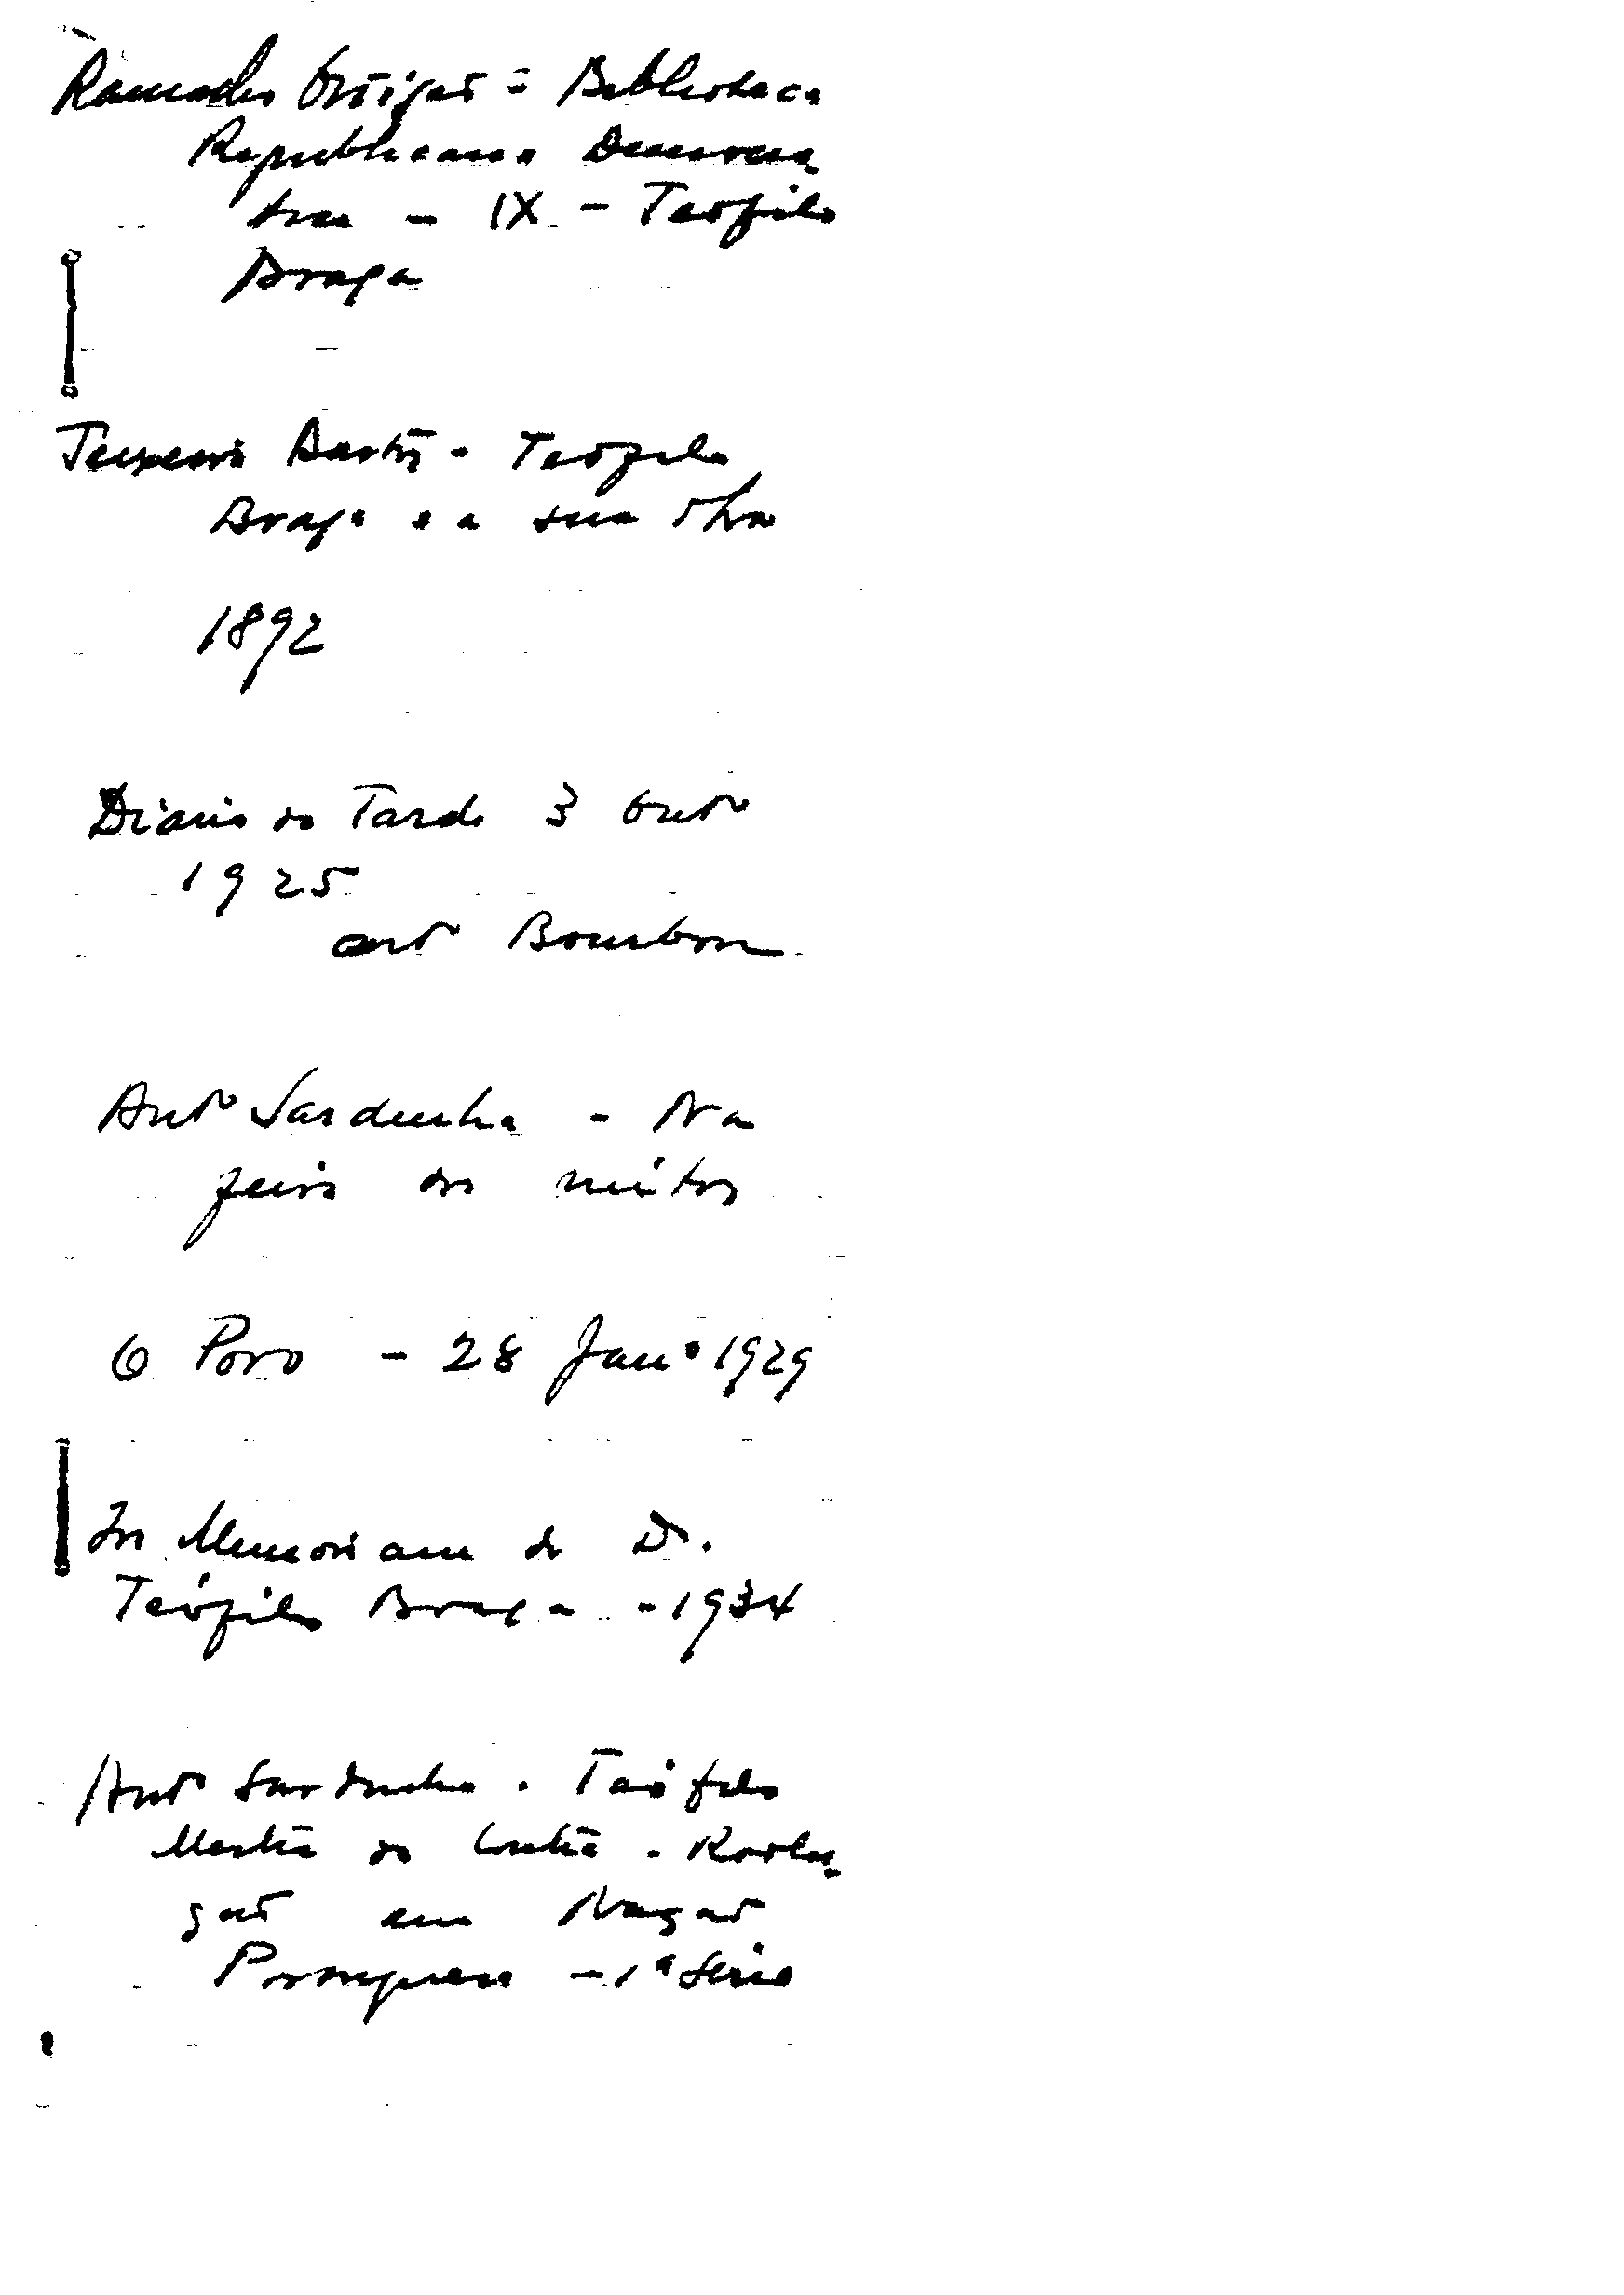 Ramalho Ortigão - Bibliotheca
Republicana Democra
tica - IX - Teofilo
Braga
Teixeira Bastos - Teofilo
Braga e a sua obra
1892
Diario da Tarde 3 Outº
1925
artº Bourbon
Antº Sardinha - Na
feira dos mitos
O Povo - 28 Janº 1929
In Memoriam do Dr.
Teófilo Braga - 1934
Antº Sardinha - Teófilo
Mestre da Contra-Revolu
ção em Nação
Portuguesa - 1ª Série